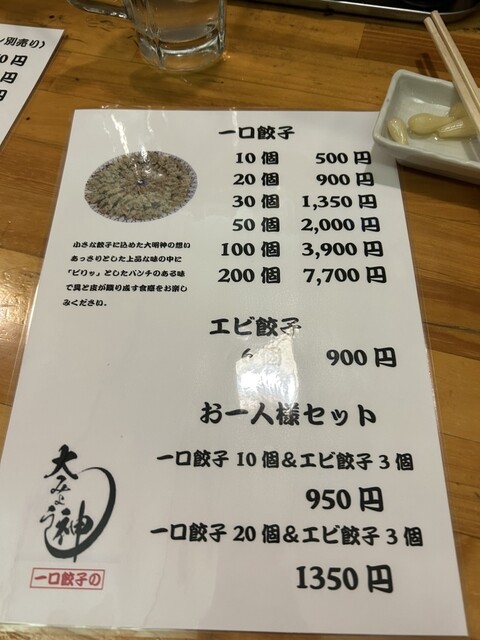 別売り)
0円
円
円
一口餃子
10個 500円
20個 900円
30個 1,350円
50個 2,000円
100個 3,900円
200個 7,700円
小さな餃子に込めた大明神の想い
あっさりとした上品な味の中に
「ピリッ」としたパンチのある味
で具と皮が織り成す食感をお楽し
みください。
エビ餃子
6個 900円
お一人様セット
一口餃子10個&エビ餃子3個
950円
一口餃子20個&エビ餃子3個
1350円
大みょう神
一口餃子の